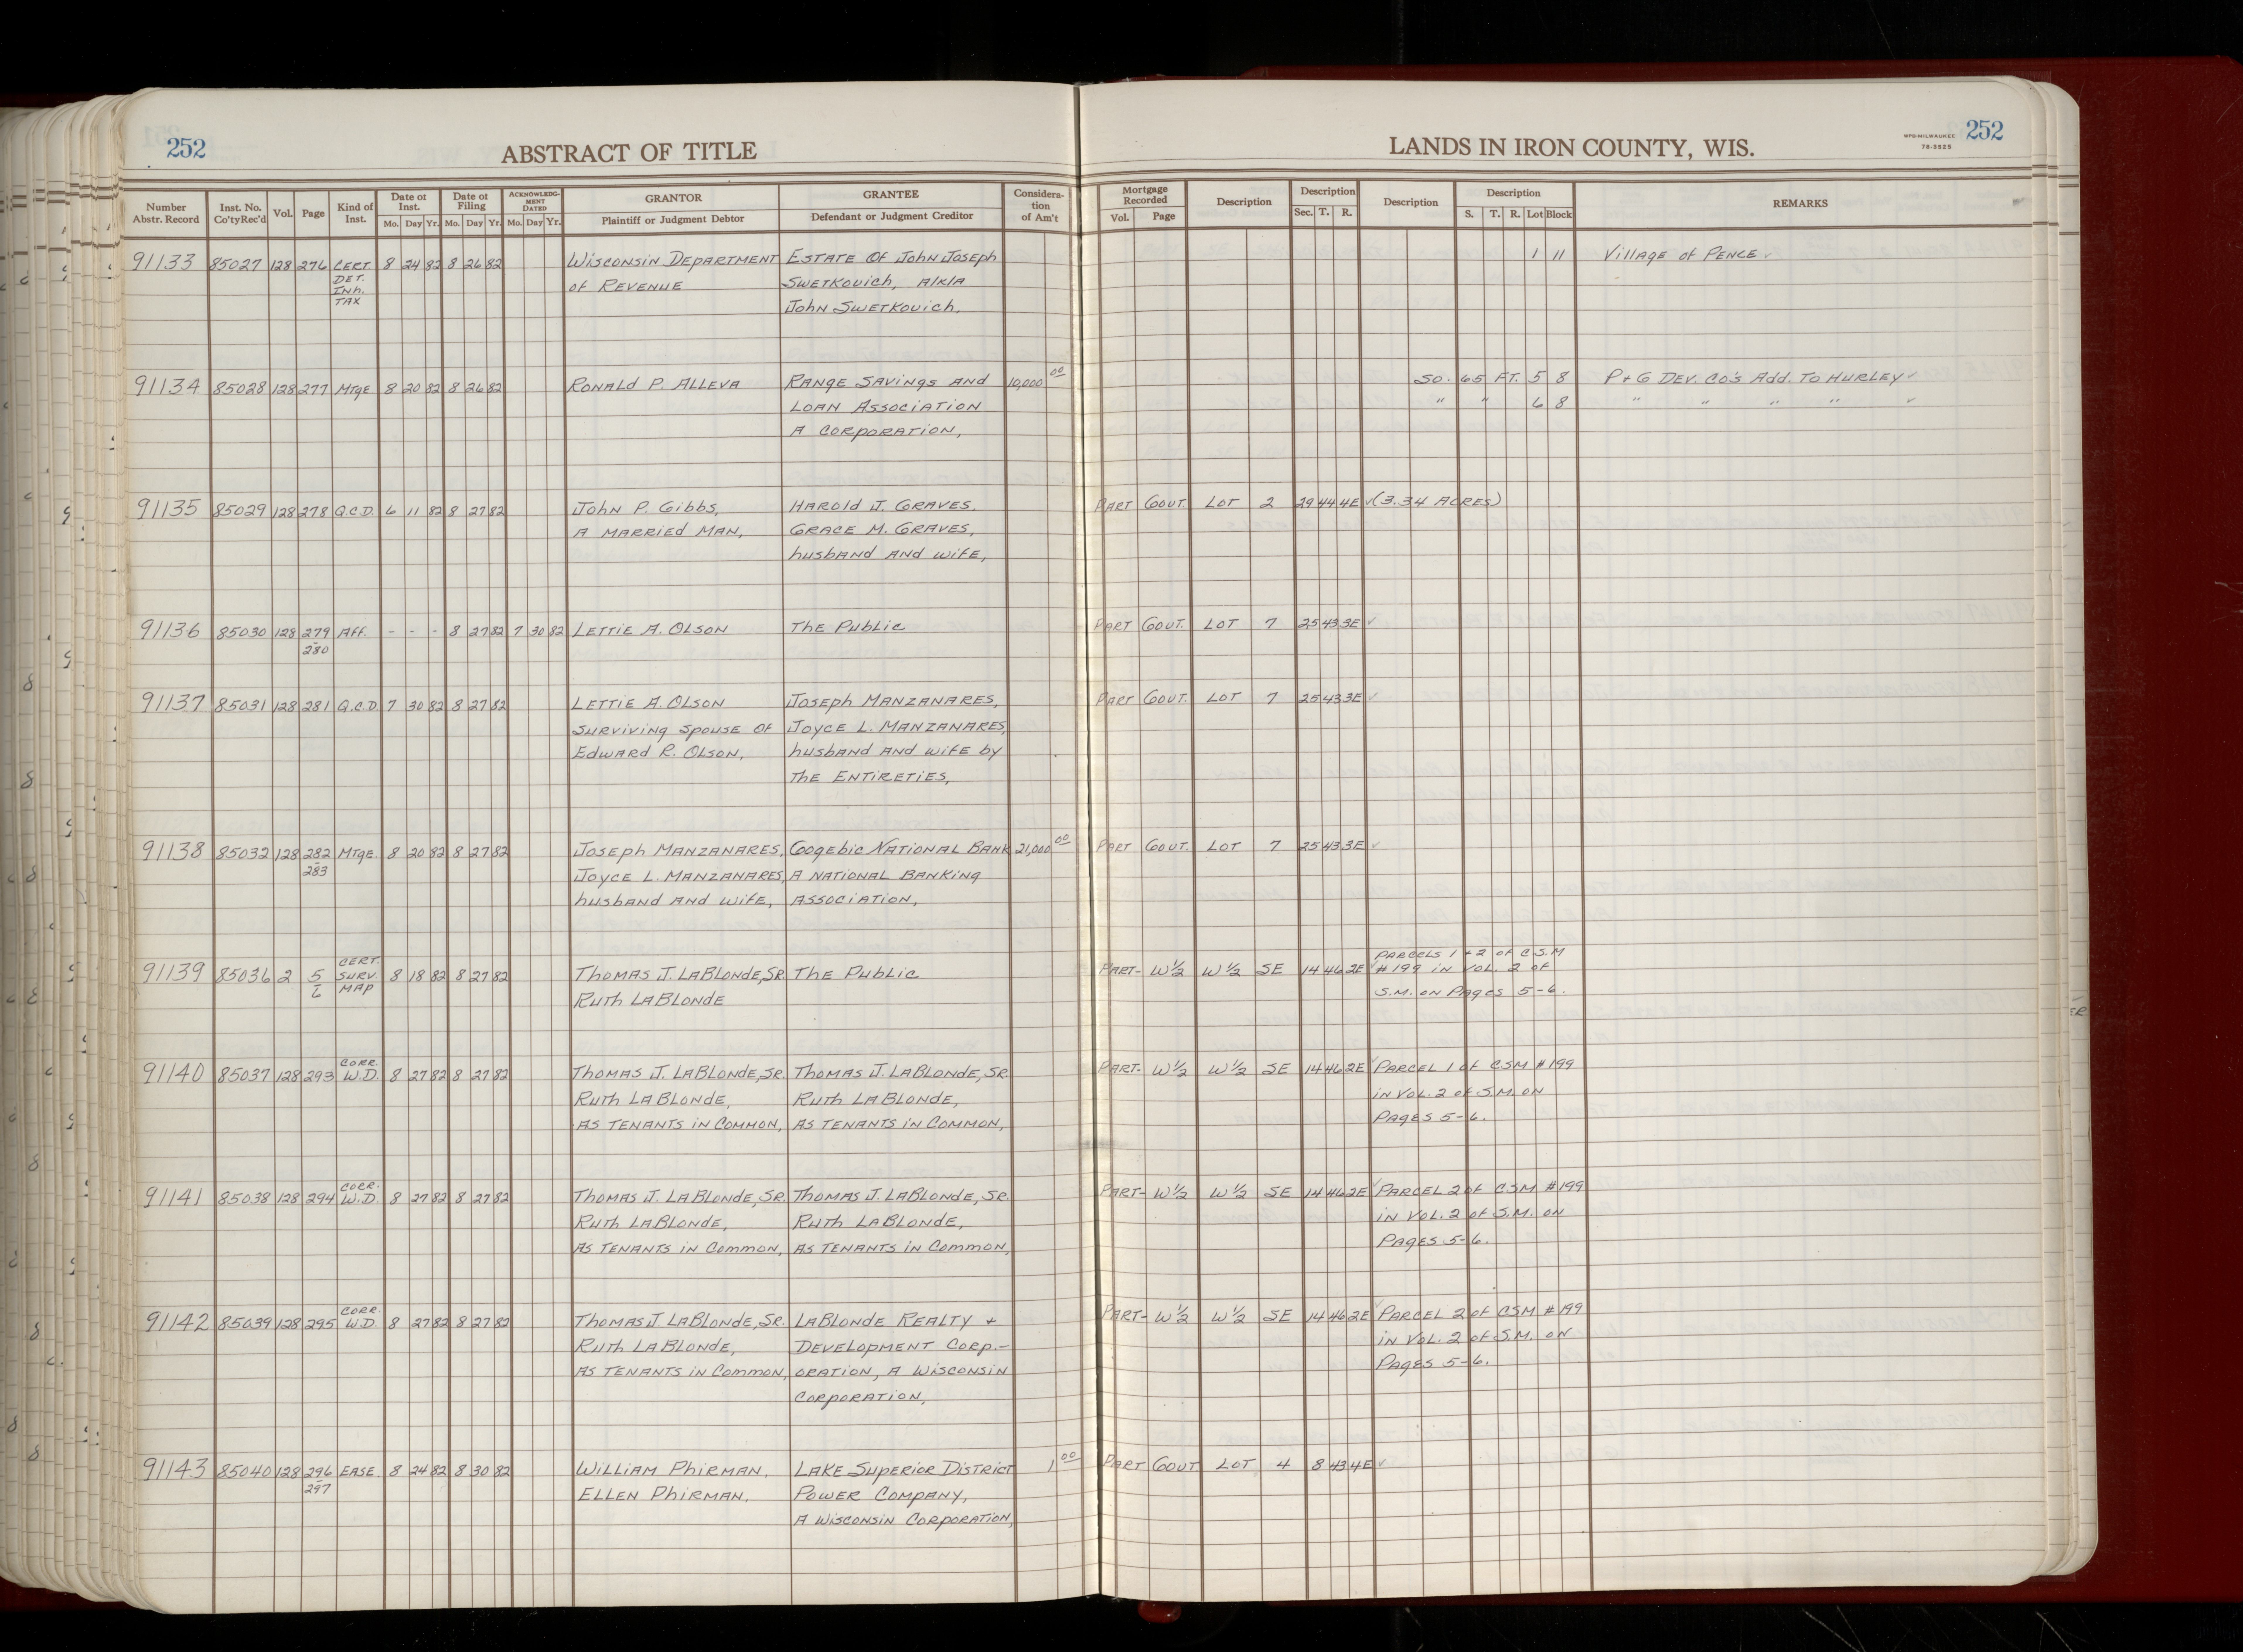 252
ABSTRACT OF TITLE
LANDS IN IRON COUNTY, WIS.
WPB-MILWAUKEE
78-3525
252
Number Abstr. Record | Inst. No. Co'tyRec'd | Vol. | Page | Kind of Inst. | Date of Inst. Mo. Day Yr. | Date of Filing Mo. Day Yr. | ACKNOWLEDGMENT DATED Mo. Day Yr. | GRANTOR Plaintiff or Judgment Debtor | GRANTEE Defendant or Judgment Creditor | Consideration of Am't | Mortgage Recorded Vol. Page | Description | Description Sec. T. R. | Description | Description S. T. R. Lot Block | REMARKS
91133 85027 128 276 CERT 8 24 82 8 26 82 Wisconsin DEPARTMENT ESTATE OF John Joseph 1 11 Village of PENCE ✓
DET. of REVENUE SWETKovich, A/K/A
INh. John SWETKovich,
TAX
91134 85028 128 277 MTgE 8 20 82 8 26 82 RONALD P. ALLEVA RANGE SAVINGS AND 10,000 00 SO. 65 FT. 5 8 P+G DEV. CO'S Add. TO HURLEY ✓
LOAN ASSOCIATION " " 6 8 " " " " ✓
A CORPORATION,
91135 85029 128 278 Q.C.D. 6 11 82 8 27 82 John P. Gibbs, HAROLD J. GRAVES, PART GOUT. LOT 2 29 44 4E ✓ (3.34 ACRES)
A MARRIED MAN, GRACE M. GRAVES,
husband AND wife,
91136 85030 128 279 AFF. - - - 8 27 82 7 30 82 LETTIE A. OLSON The Public PART GOUT. LOT 7 25 43 3E ✓
-280
91137 85031 128 281 Q.C.D 7 30 82 8 27 82 LETTIE A. OLSON Joseph MANZANARES, PART GOUT. LOT 7 25 43 3E ✓
SURVIVING SPOUSE OF Joyce L. MANZANARES,
Edward R. OLSON, husband AND wife by
The ENTIRETIES,
91138 85032 128 282 MTgE. 8 20 82 8 27 82 Joseph MANZANARES, Gogebic NATIONAL BANK 21,000 00 PART GOUT. LOT 7 25 43 3E ✓
-283 Joyce L. MANZANARES, A NATIONAL BANKING
husband AND wife, ASSOCIATION,
CERT. PARCELS 1 + 2 OF C.S.M
91139 85036 2 5 SURV. 8 18 82 8 27 82 Thomas J. LABLONDE, SR. The Public PART- W½ W½ SE 14 46 2E #199 in VOL. 2 OF
-6 MAP Ruth LABLONDE S.M. ON PAgES 5-6.
CORR.
91140 85037 128 293 W.D. 8 27 82 8 27 82 Thomas J. LABLONDE, SR. Thomas J. LABLONDE, SR. PART- W½ W½ SE 14 46 2E ✓ PARCEL 1 of CSM #199
Ruth LABLONDE, Ruth LABLONDE, in VOL. 2 of S.M. ON
AS TENANTS in COMMON, AS TENANTS in COMMON, PAGES 5-6.
CORR.
91141 85038 128 294 W.D 8 27 82 8 27 82 Thomas J. LABLONDE, SR. Thomas J. LABLONDE, SR. PART- W½ W½ SE 14 46 2E ✓ PARCEL 2 of CSM #199
Ruth LABLONDE, Ruth LABLONDE, in VOL. 2 of S.M. ON
AS TENANTS in Common, AS TENANTS in Common, PAGES 5-6.
CORR.
91142 85039 128 295 W.D. 8 27 82 8 27 82 Thomas J. LABLONDE, SR. LABLONDE REALTY + PART- W½ W½ SE 14 46 2E ✓ PARCEL 2 of CSM #199
Ruth LABLONDE, DEVELOPMENT CORP.- in VOL. 2 OF S.M. ON
AS TENANTS in Common, ORATION, A WISCONSIN PAGES 5-6.
CORPORATION,
91143 85040 128 296 EASE. 8 24 82 8 30 82 William PhiRMAN, LAKE SupERIOR DISTRICT 1 00 PART GOUT LOT 4 8 43 4E ✓
-297 ELLEN PhiRMAN, POWER COMPANY,
A Wisconsin CORPORATION,